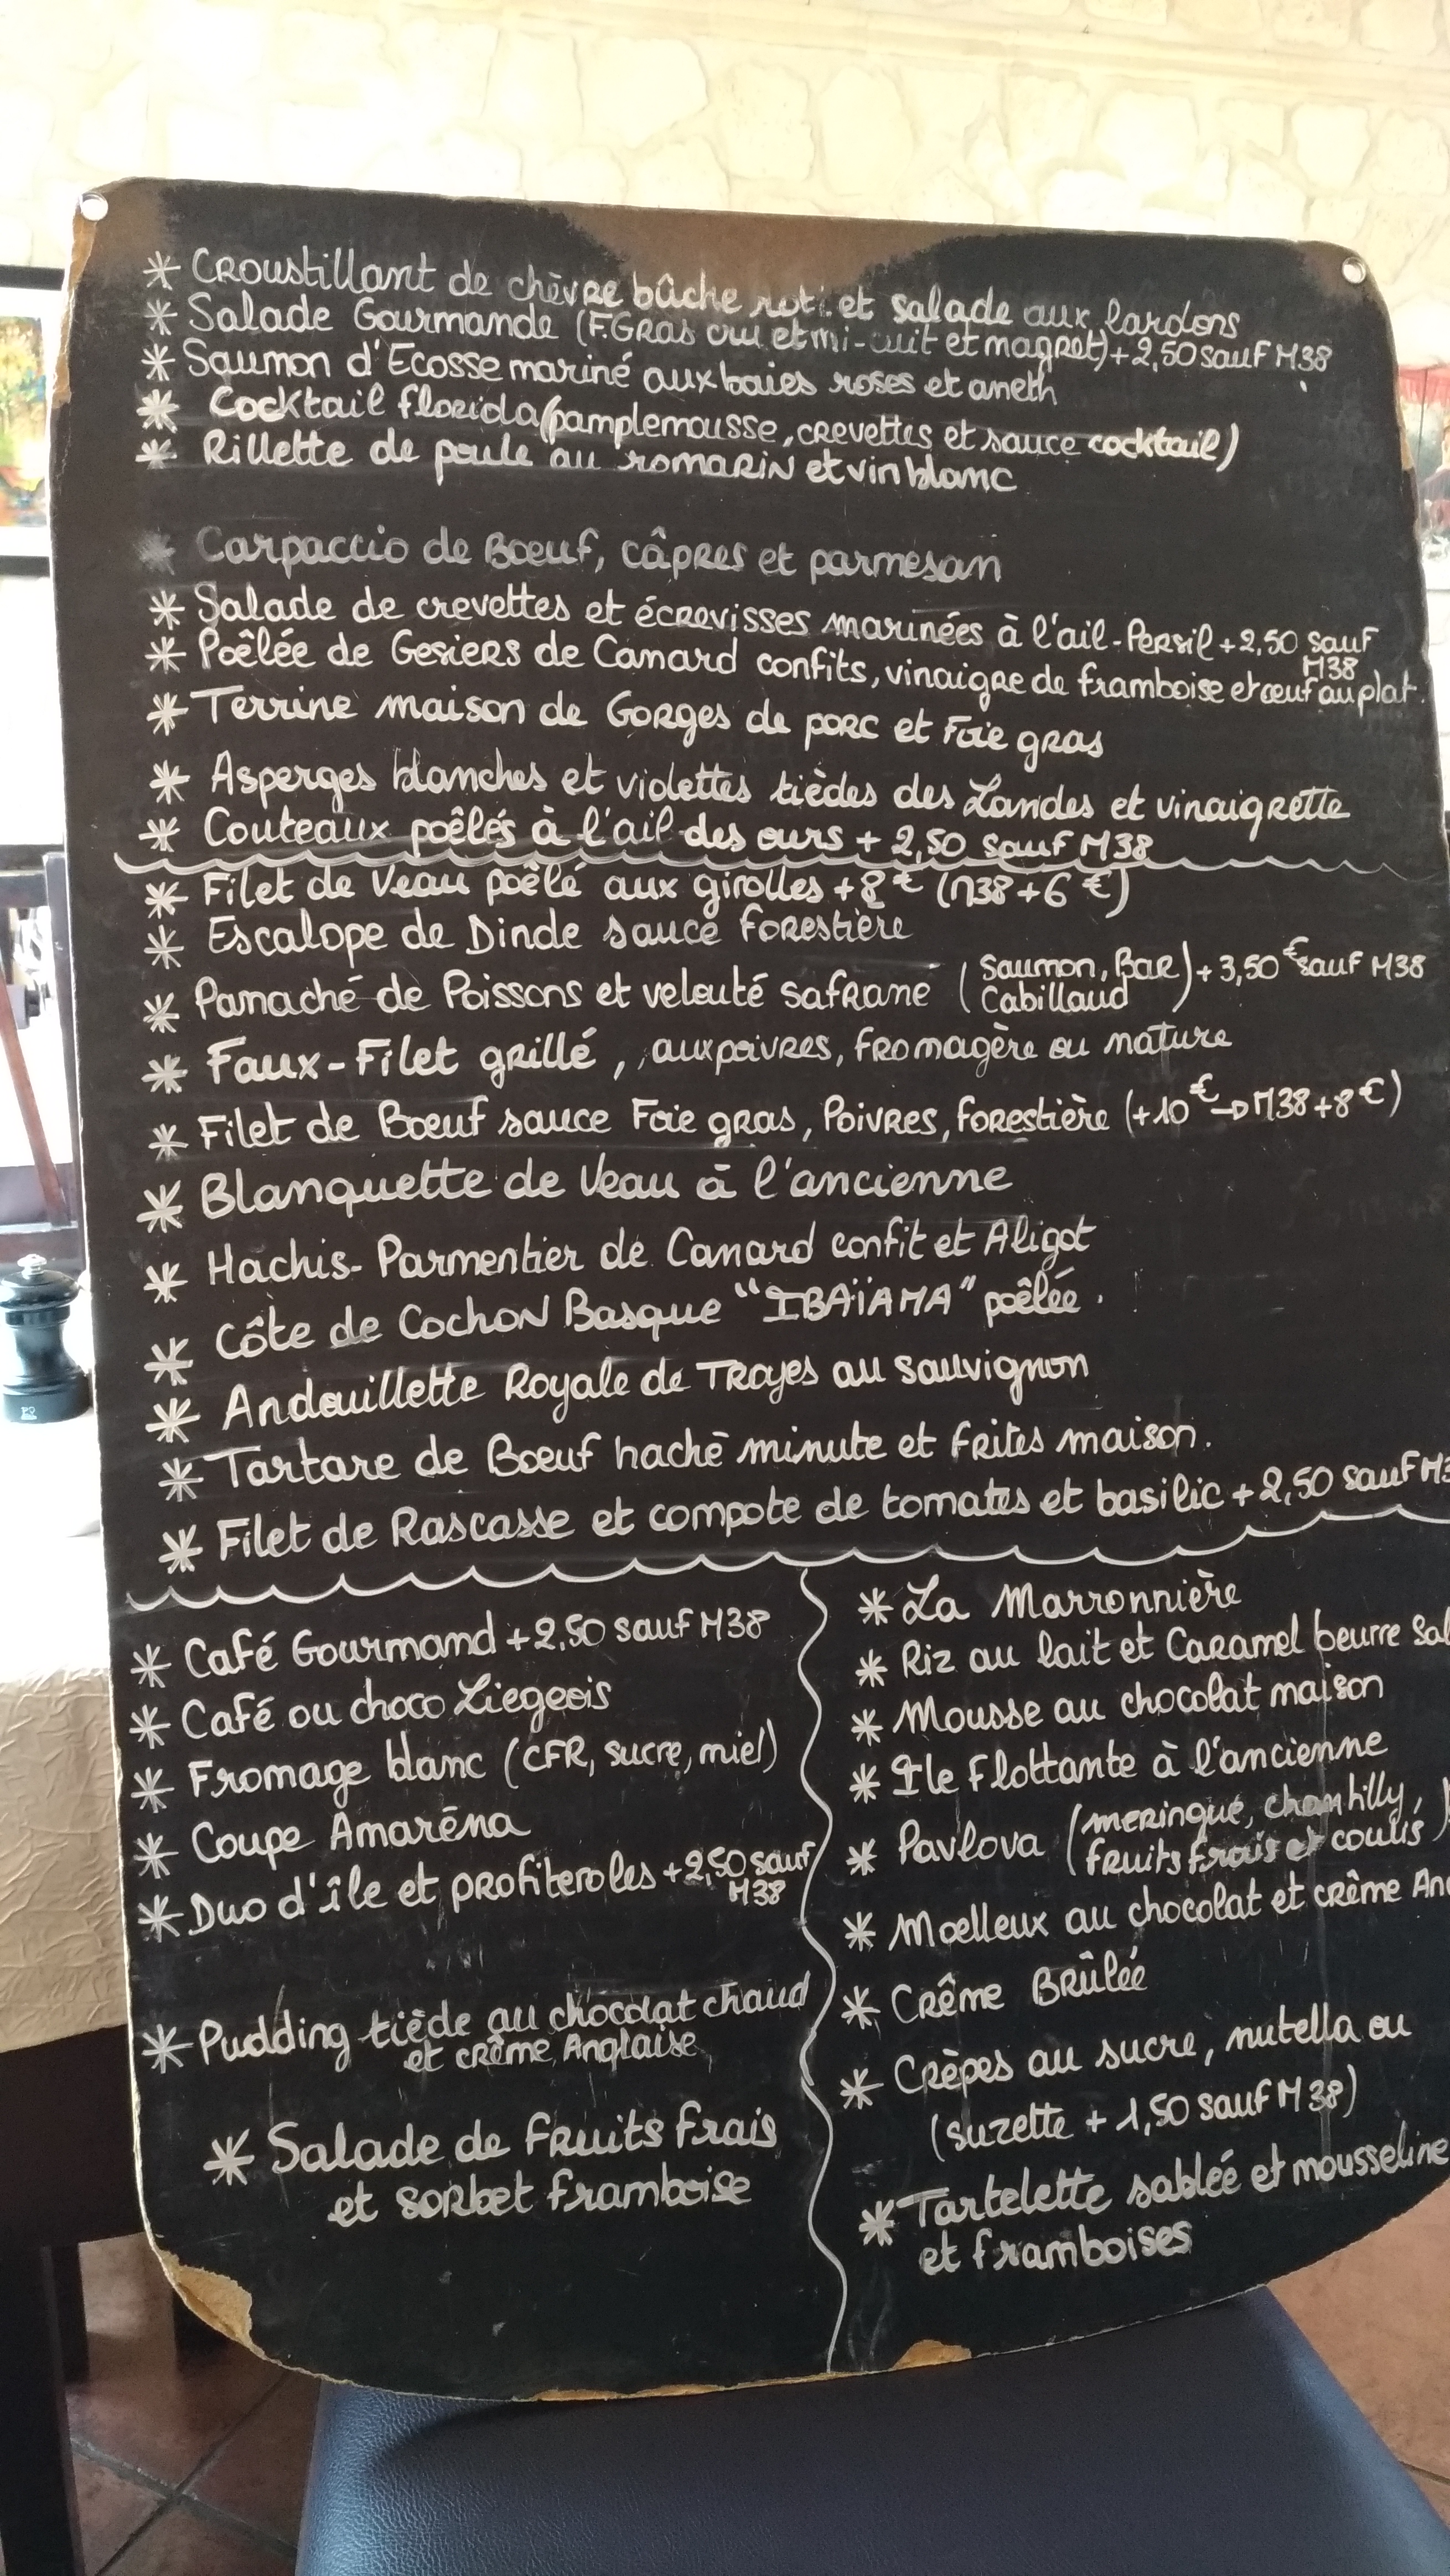 * Croustillant de chèvre bûche roti et salade aux lardons
* Salade Gourmande (F.Gras cru et mi-cuit et magret) + 2,50 sauf M38
* Saumon d'Ecosse mariné aux baies roses et aneth
* Cocktail florida (pamplemousse, crevettes et sauce cocktail)
* Rillette de poule au romarin et vin blanc
* Carpaccio de Boeuf, câpres et parmesan
* Salade de crevettes et écrevisses marinées à l'ail-Persil + 2,50 sauf M38
* Poêlée de Gesiers de Canard confits, vinaigre de framboise et œuf au plat.
* Terrine maison de Gorges de porc et Foie gras
* Asperges blanches et violettes tièdes des Landes et vinaigrette
* Couteaux poêlés à l'ail des ours + 2,50 sauf M38
* Filet de Veau poêlé aux girolles + 8€ (M38 + 6€)
* Escalope de Dinde sauce forestière
* Panaché de Poissons et velouté safrané (Saumon, Bar Cabillaud) + 3,50€ sauf M38
* Faux-Filet grillé, aux poivres, fromagère ou nature
* Filet de Bœuf sauce Foie gras, Poivres, forestière (+10€ → M38 + 8€)
* Blanquette de Veau à l'ancienne
* Hachis-Parmentier de Canard confit et Aligot
* Côte de Cochon Basque "IBAÏAMA" poêlée.
* Andouillette Royale de Troyes au sauvignon
* Tartare de Bœuf haché minute et frites maison.
* Filet de Rascasse et compote de tomates et basilic + 2,50 sauf M3
* Café Gourmand + 2,50 sauf M38
* Café ou choco Liegeois
* Fromage blanc (CFR, sucre, miel)
* Coupe Amaréna
* Duo d'île et profiteroles + 2,50 sauf M38
* Pudding tiède au chocolat chaud
et crème Anglaise
* Salade de fruits frais
et sorbet framboise
* La Marronnière
* Riz au lait et Caramel beurre Sal
* Mousse au chocolat maison
* Ile flottante à l'ancienne
* Pavlova (meringue, chantilly,
fruits frais et coulis)
* Moelleux au chocolat et crème An
* Crême Brûlée
* Crèpes au sucre, nutella ou
(suzette + 1,50 sauf M38)
* Tartelette sablée et mousseline
et framboises